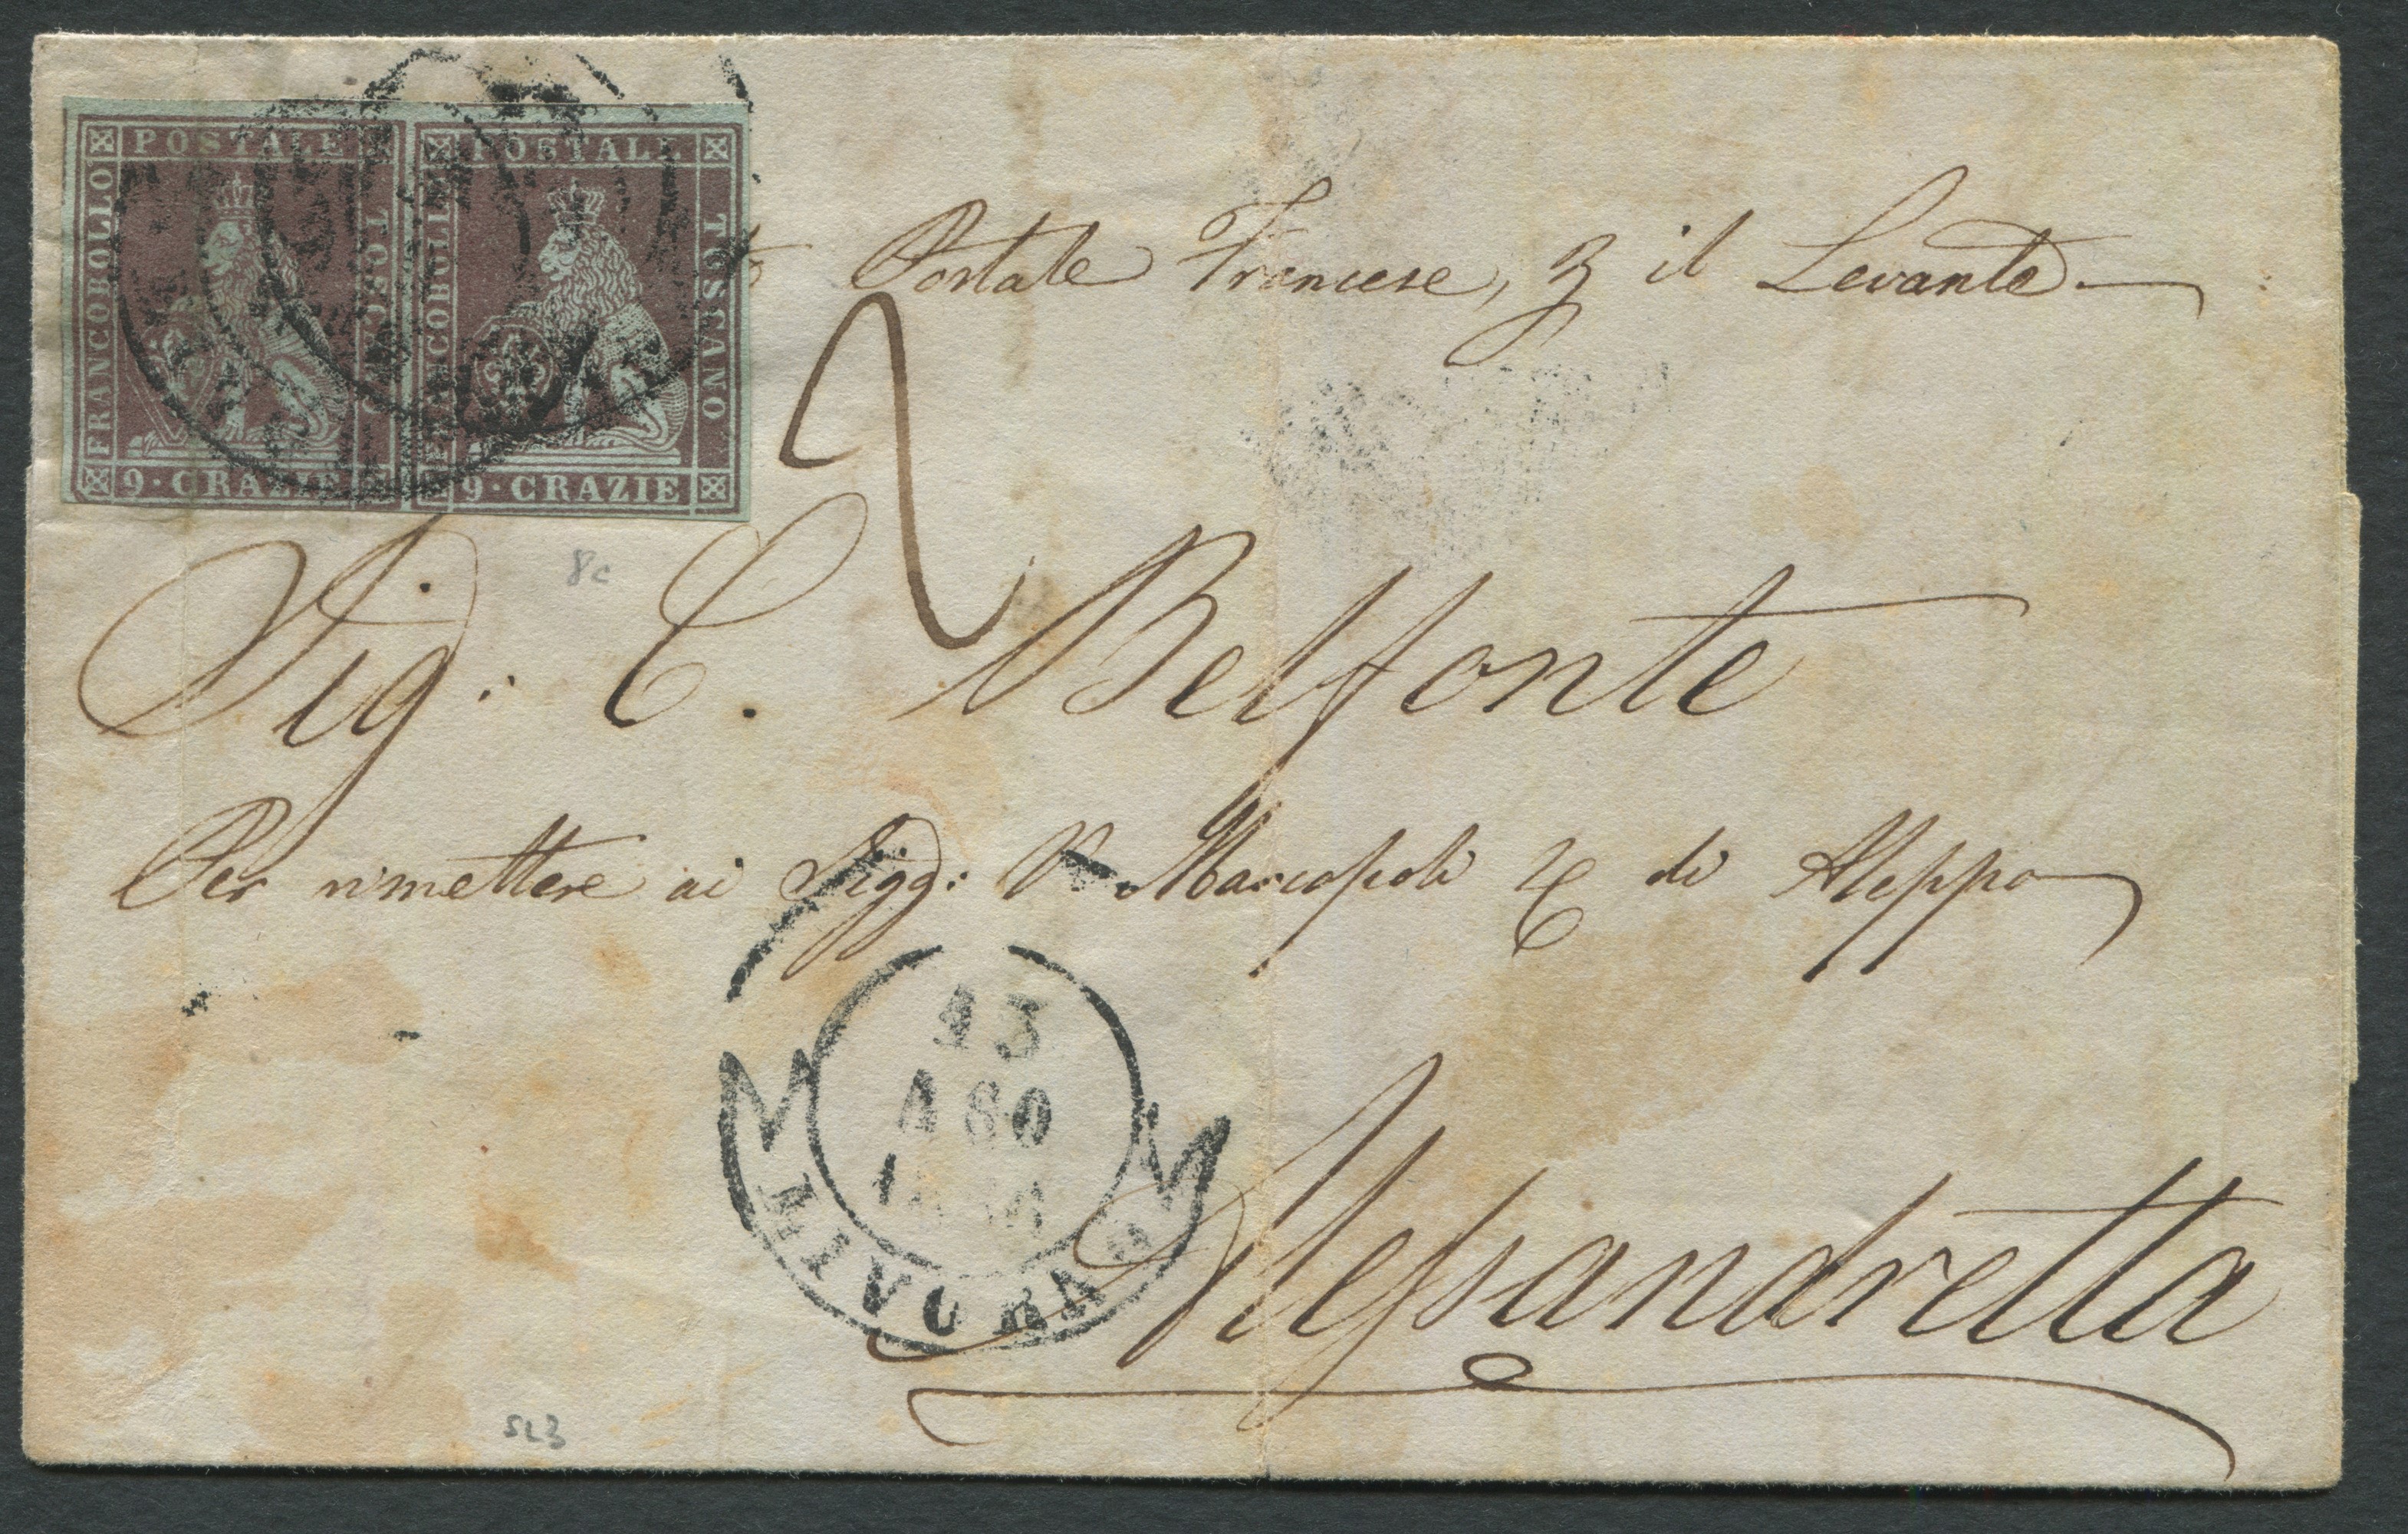 POSTALE POSTALE
FRANCOBOLLO TOSCANO FRANCOBOLLO TOSCANO
9·CRAZIE 9·CRAZIE
Postale Francese, p il Levante
2
8c
Sig: C. Belfonte
Per rimettere ai Sigg: V. Marcopoli & C di Aleppo
13
AGO
LIVORNO
Alessandretta